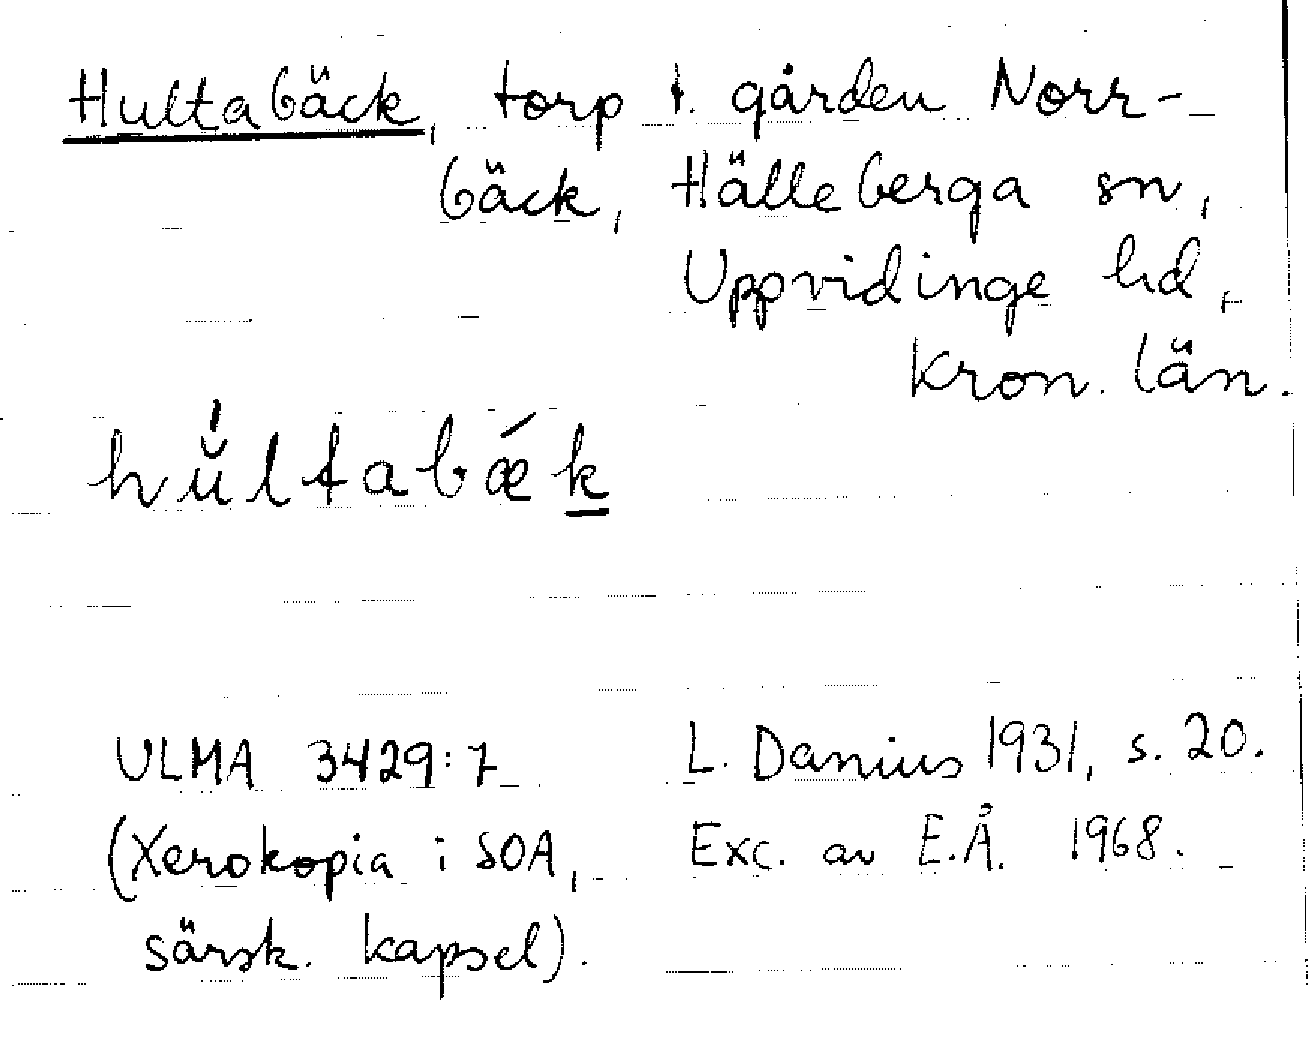 Hultabäck, torp t. gården Norr-
bäck, Hälleberga sn,
Uppvidinge hd,
Kron. län.
hŭ́ltabǽk
ULMA 3429:7 L. Danius 1931, s. 20.
(Xerokopia i SOA, Exc. av E.Å. 1968.
särsk. kapsel).